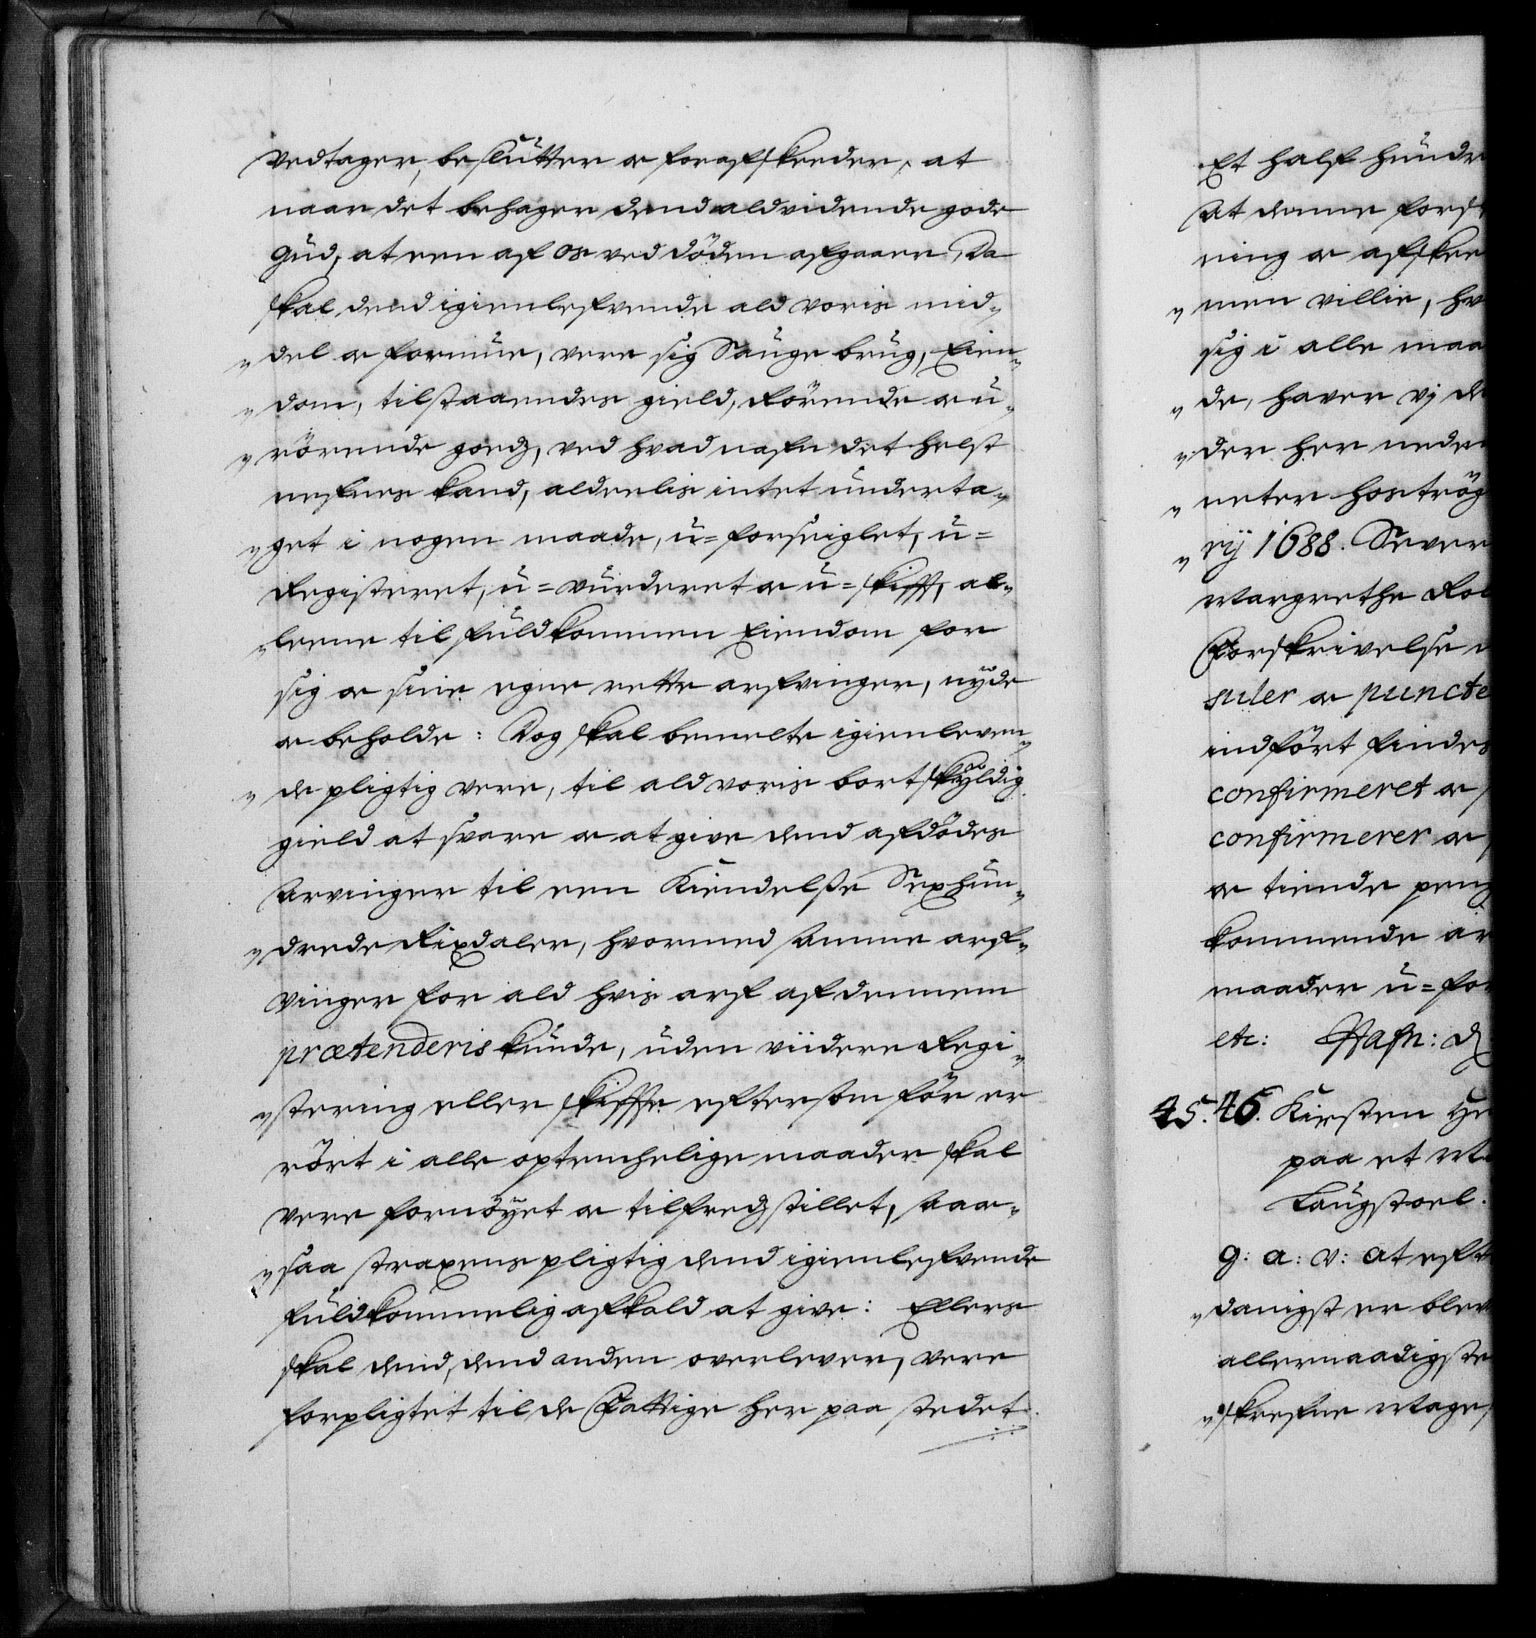 vedtager, beslutter og forafskeeder, at
naar det behager dend aldvidende gode
Gud, at een af os ved döden afgaaer, Da
skal dend igienlefvende ald voris mid-
del og formue, vere sig Sauge brug, Eien-
dom, tilstaaendes gield, rörende og u-
rörende goedz, ved hvad nafn det helst
nefnes kand, aldeelis intet underta-
get i nogen maade, u=forseiglet, u=
Registeret, u=vurderet og u=skifft, al-
leene til fuldkommen Eiendom for
sig og sine egne rette arfvinger, nyde
og beholde: Dog skal bemelte igienleven-
de pligtig vere, til ald voris bortskyldig
gield at svare og at give dend afdödes
Arvinger til een Kiendelse Sexhun-
drede Rixdaler, hvormed samme arf-
vinger for ald hvis arf af dennem
prætenderis kunde, uden viidere Regi-
stering eller skiffte eftersom för er
rört i alle optenchelige maader skal
vere fornöyet og tilfredzstillet, saa-
saa straxens pligtig dend igienlefvende
fuldkommelig afkald at give: Ellers
skal dend, dend anden overlever, vere
forpligtet til de Fattige her paa stedet
Et half hundre
At denne fors
ning og afskee
men villie, hv
sig i alle maa
de, haver vj de
der her neden
neter hoströg
rij 1688. Sever
Margrethe Rol
Forskrivelse
suler og puncte
indfört findes
confirmeret og
confirmerer og
og tiende peng
kommende ar
maader u=for
etc: Hafn: d
45. 46. Kirsten He
paa et
Laugstoel.
g: a: v: at eft
danigst er blev
allernaadigste
skrefne Mage